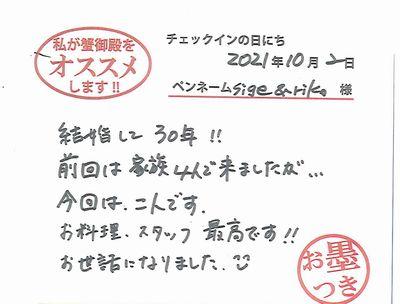 私が蟹御殿を
オススメ
します!!
チェックインの日にち
2021年10月2日
ペンネームsige&riko 様
結婚して30年!!
前回は家族4人で来ましたが…
今回は、二人です.
お料理、スタッフ 最高です!!
お世話になりました.
お墨
つき